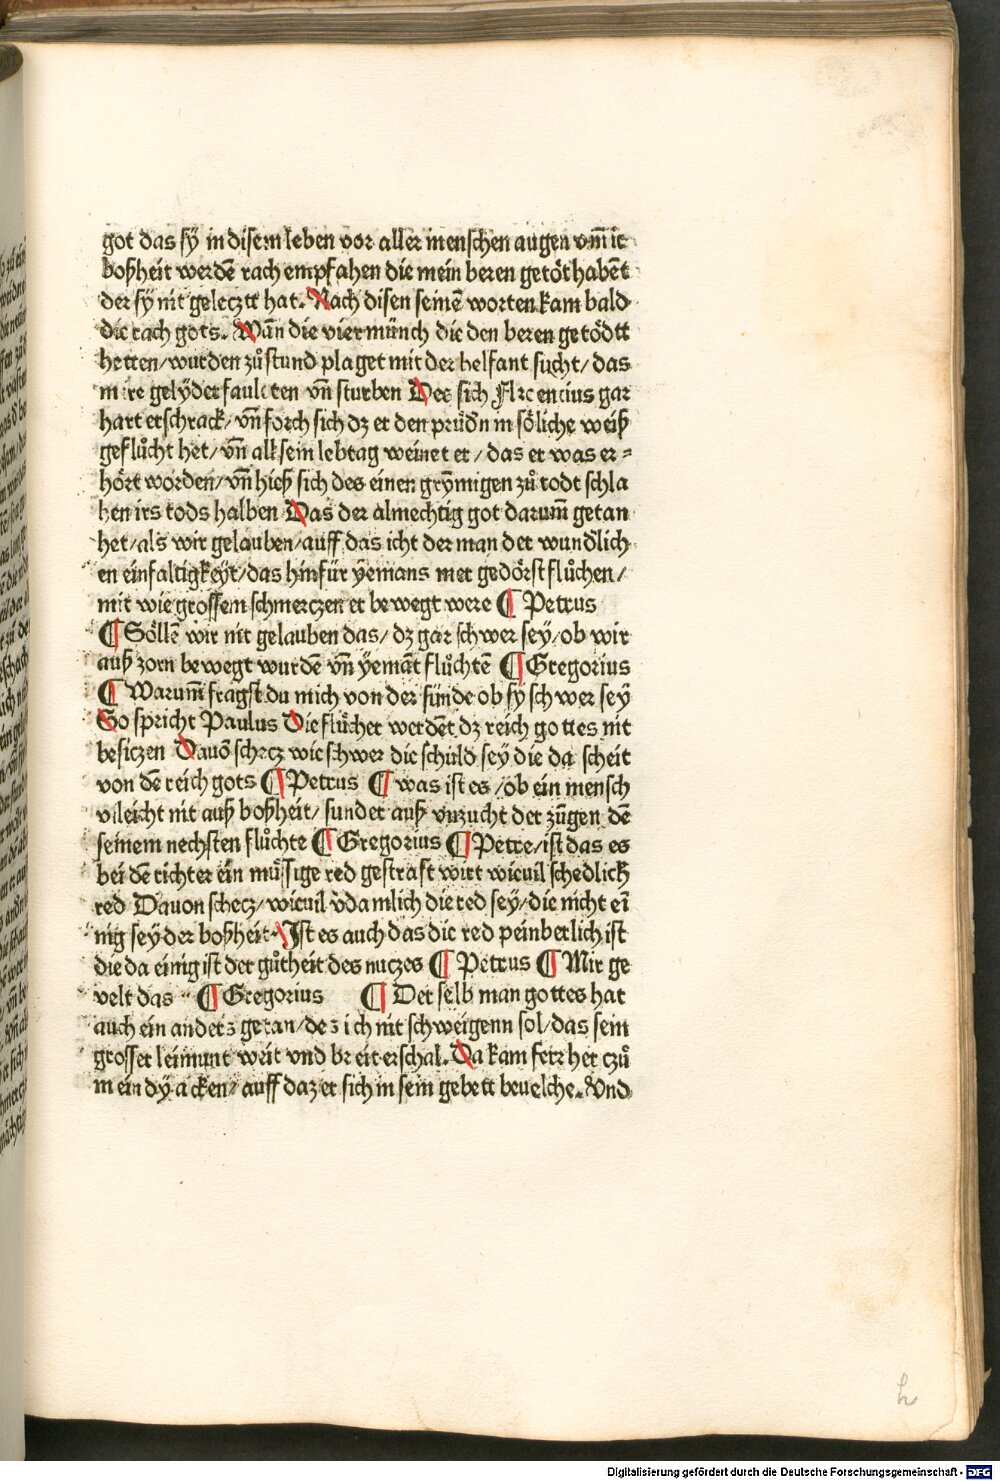 got das sÿ in disem leben vor aller menschen augen vm̄ ir
boßheit werdē rach empfahen die mein beren getöt habēt
der sÿ nit geletztt hat. Nach disen seinē worten kam bald
die rach gots. Wān die vier münch die den beren getödtt
hetten/wurden zů stund plaget mit der helfant sucht/das
in ire gelÿder faulētten vn̄ sturben Des sich Florentius gar
hart erschrack/vn̄ forch sich dz er den prüdn in söliche weiß
geflůcht het/vn̄ all sein lebtag weinet er/das er was er=
hört worden/vn̄ hieß sich des einen grÿmigen zů todt schla
hen irs tods halben Das der almechtig got darum̄ getan
het/als wir gelauben/auff das icht der man der wundlich
en einfaltigkeÿt/das hinfür ÿemans mer gedörst flůchen/
mit wie grossem schmerczen er bewegt were ¶ Petrus
¶ Söllē wir nit gelauben das/dz gar schwer sey/ob wir
auß zorn bewegt wurdē vn̄ ÿemāt flůchtē ¶ Gregorius
¶ Warum̄ fragst du mich von der sünde ob sÿ schwer sey
So spricht Paulus Die flůcher werdēt dz reich gottes nit
besiczen Dauō schecz wie schwer die schuld sey die da scheit
von dē reich gots ¶ Petrus ¶ was ist es/ob ein mensch
vileicht nit auß boßheit/sundet auß vnzucht der zūgen dē
seinem nechsten flůchte ¶ Gregorius ¶ Petre/ist das es
bei dē richter ein müssige red gestraft wirt wieuil schedlich
red Dauon schecz/wieuil v̄damlich die red sey/die nicht eī
nig sey der boßheit Ist es auch das die red peinberlich ist
die da einig ist der gůtheit des nuczes ¶ Petrus ¶ Mir ge
velt das ¶ Gregorius ¶ Der selb man gottes hat
auch ein anders getan/des ich nit schweigenn sol/das sein
grosser leimunt weit vnd breit erschal. Da kam ferr her czů
im ein dÿacken/auff daz er sich in sein gebett beuelche. Vnd
h
Digitalisierung gefördert durch die Deutsche Forschungsgemeinschaft - DFG